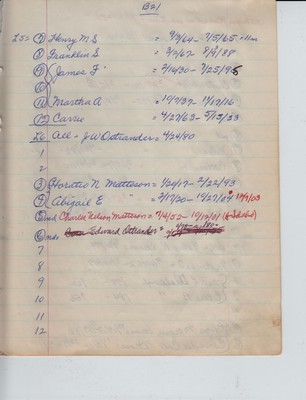 B21
25 = ⑦ Henry M S = 9/3/64 - 7/5/65 = 11m
⑧ Franklin S = 2/2/67 - 8/9/88
⑨ James F = 2/14/30 - 7/25/95
⑩
⑪ Martha A = 10/7/39 - 11/17/16
⑫ Carrie = 4/27/63 - 5/13/33
26 All - J W Ostrander = 4/24/80
1
2
③ Horatio N Matteson = 1/24/17 - 2/22/93
⑤ Abigail E " = 3/17/20 - 10/27/04
⑤ end Charles Nelson Matteson = 7/4/52 - 10/19/01
⑥ end Edward Ostrander =
7
8
9
10
11
12